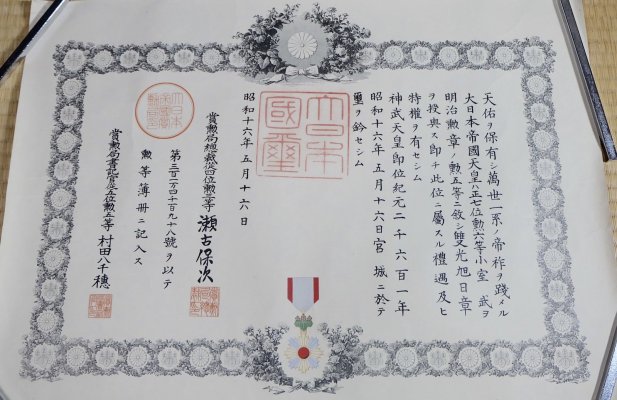 天佑ヲ保有シ萬世一系ノ帝祚ヲ踐メル
大日本帝國天皇ハ正七位勲六等小室 武ヲ
明治勲章ノ勲五等ニ敘シ雙光旭日章
ヲ授與ス即チ此位ニ屬スル禮遇及ヒ
特權ヲ有セシム
神武天皇即位紀元二千六百一年
昭和十六年五月十六日宮 城ニ於テ
璽ヲ鈐セシム
大日本國璽
昭和十六年五月十六日
賞勲局總裁從四位勲三等 瀬古保次
第三百二万四千百九十八號ヲ以テ
勲等簿冊ニ記入ス
賞勲局書記官正五位勲五等 村田八千穂